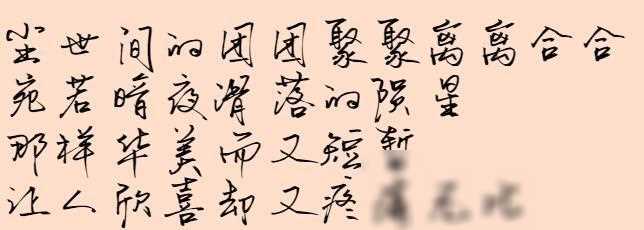 尘世间的团团聚聚离离合合
宛若暗夜滑落的陨星
那样华美而又短暂
让人欣喜却又疼